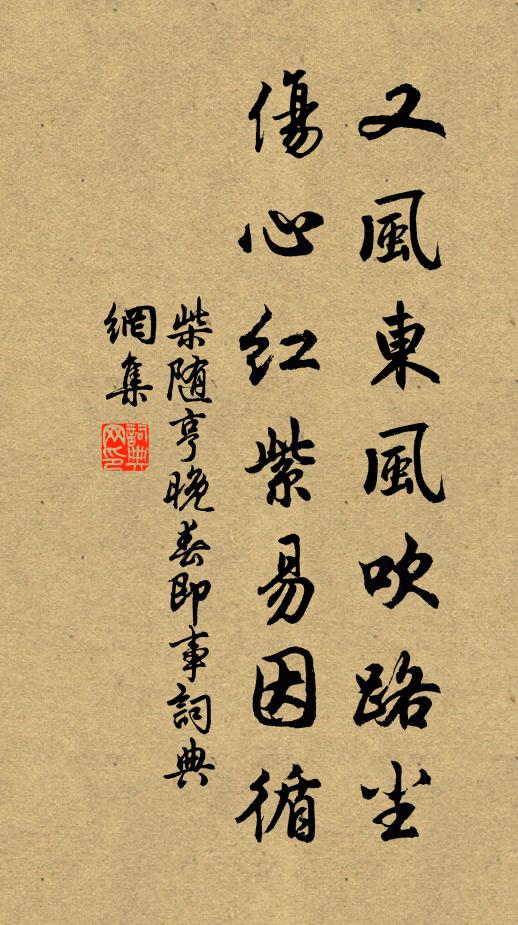 又風東風吹路尘
傷心紅紫易因循
柴随亨晚春即事詞典
網集
詞典
网印